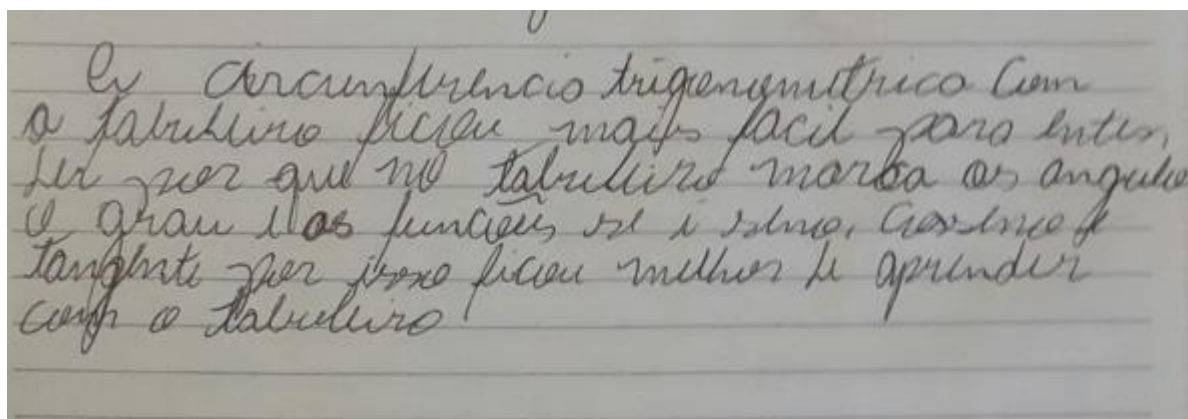 A circunferencia trigonometrica com
o tabuleiro ficou mais facil para enten
der por que no tabuleiro marca os angulo
o grau e as funções se é seno, cosseno e
tangente por isso ficou melhor de aprender
com o tabuleiro